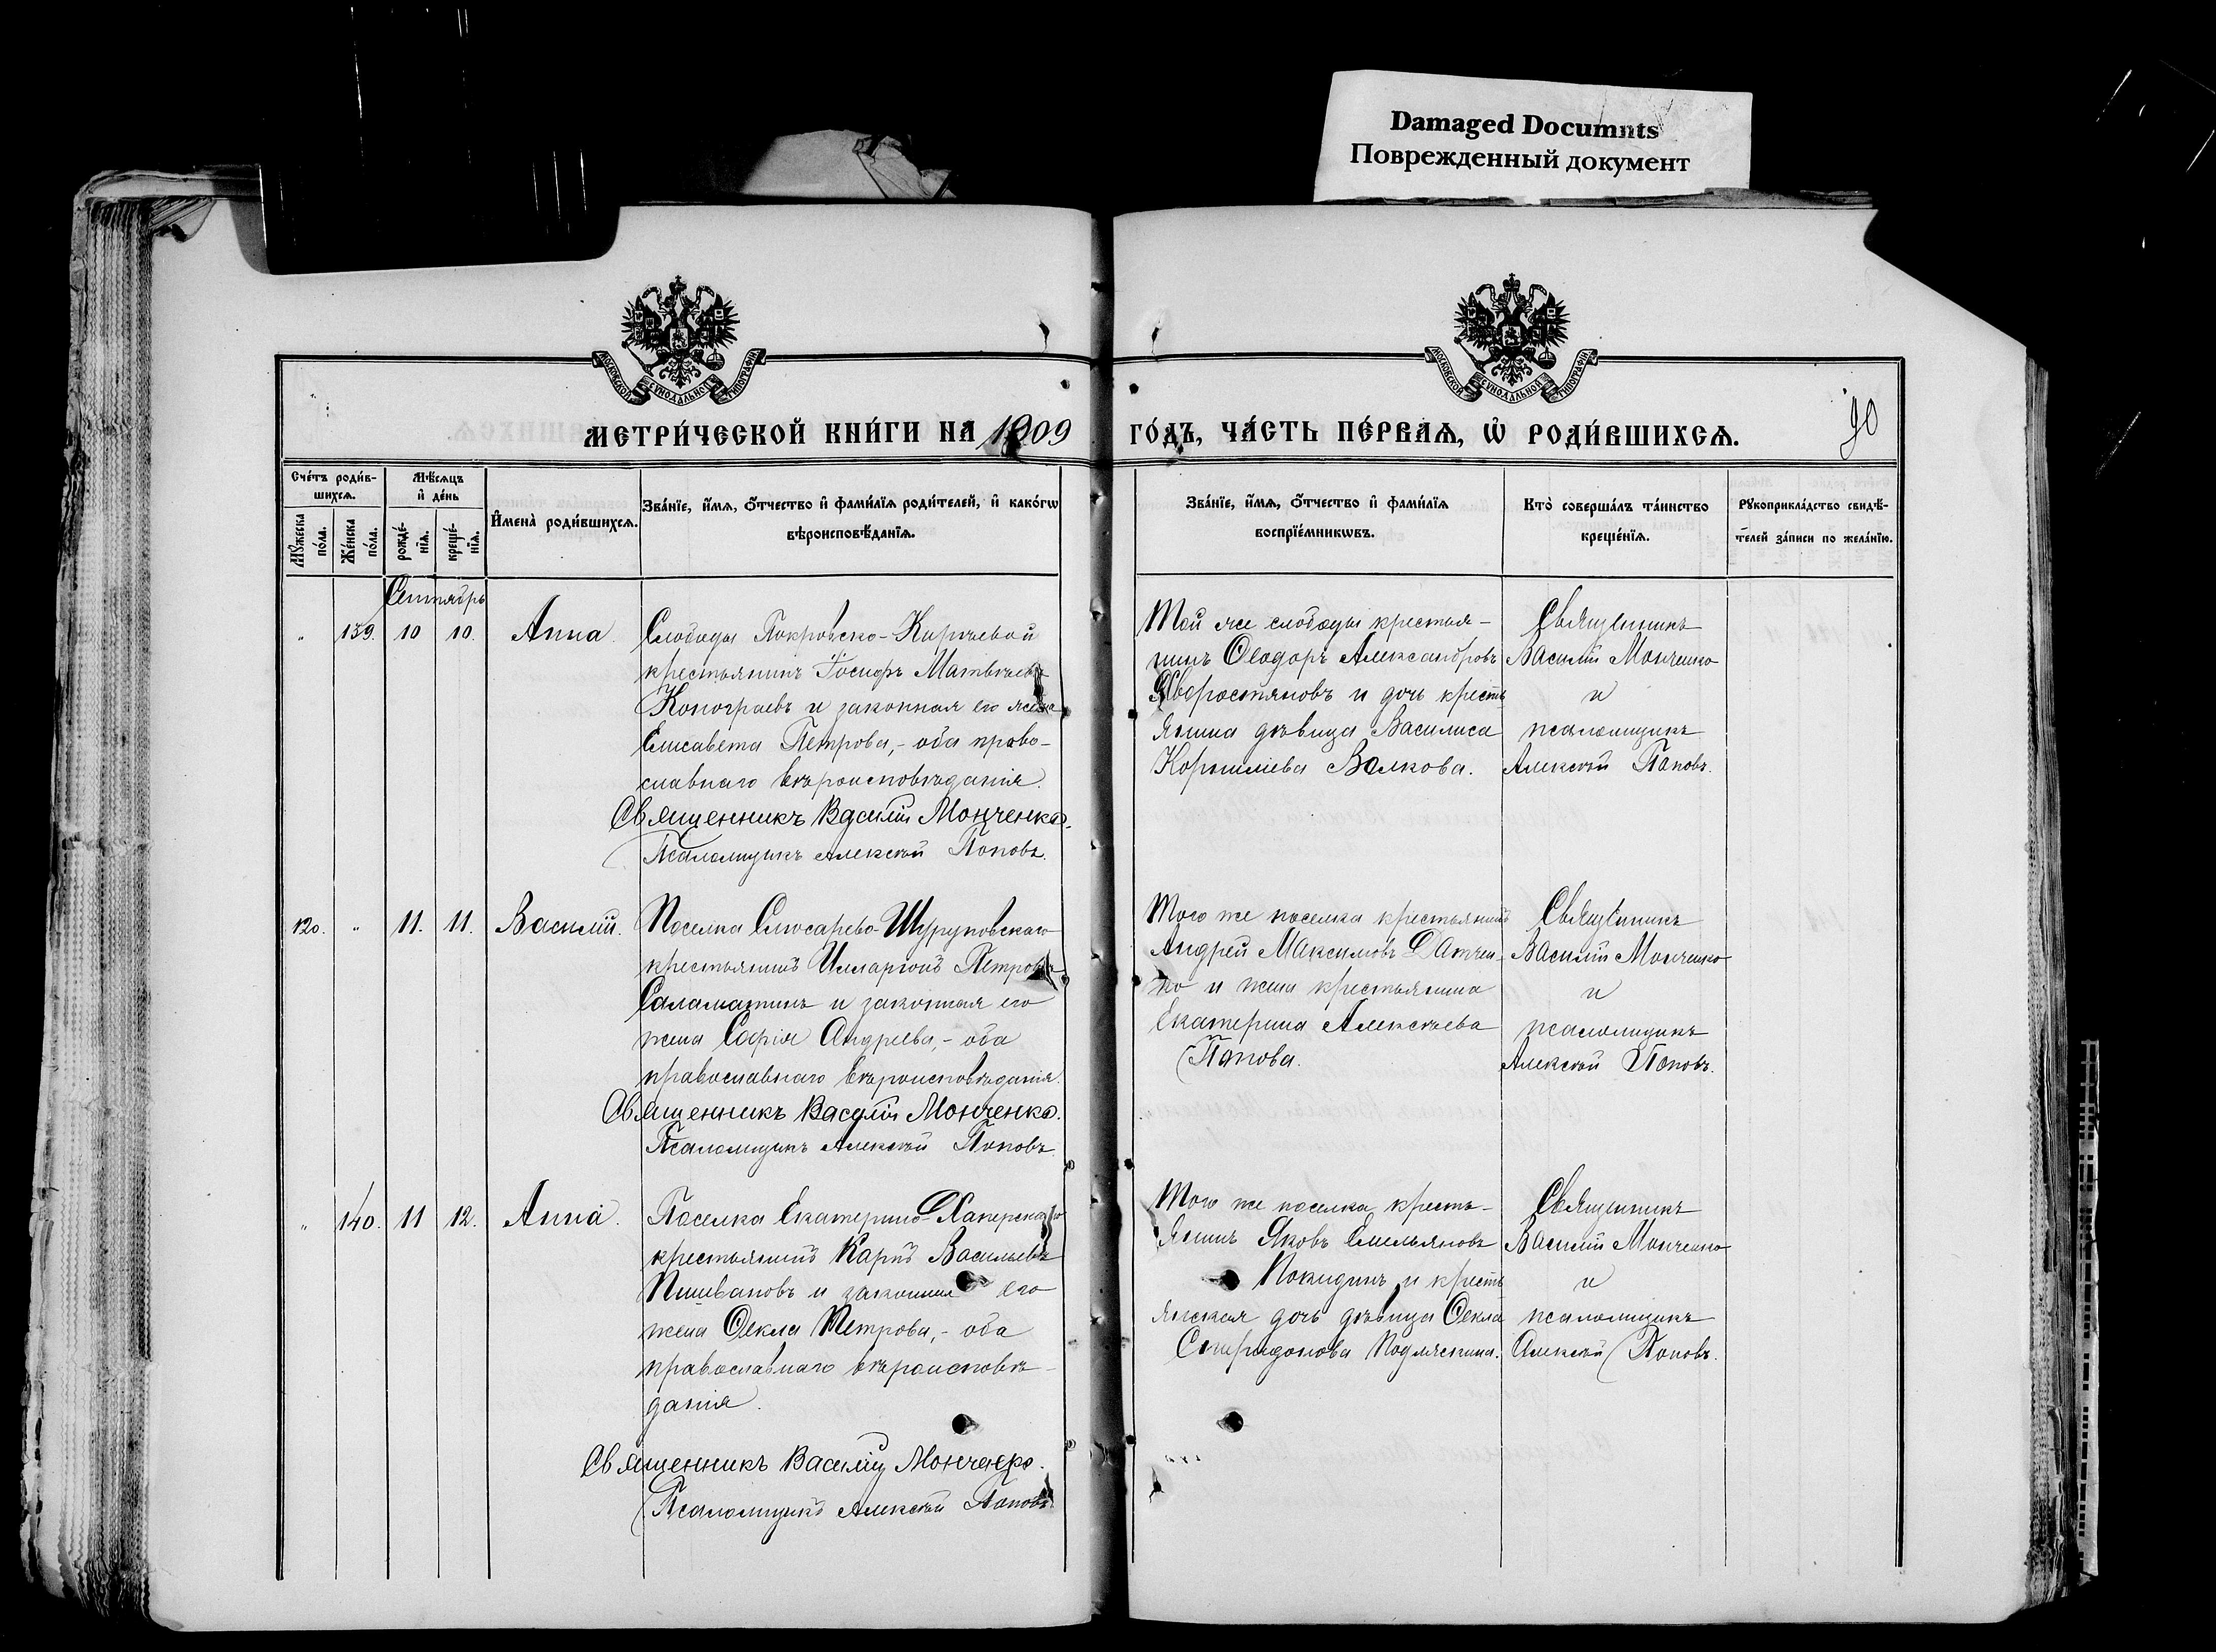 Damaged Documnts
Поврежденный документ
МОСКОВСКОЙ СѴНОДАЛЬНОЙ ТИПОГРАФІИ
МОСКОВСКОЙ СѴНОДАЛЬНОЙ ТИПОГРАФІИ
МЕТРИ́ЧЕСКОЙ КНИ́ГИ НА 1909 ГО́ДЪ, ЧА́СТЬ ПЕ́РВАѦ, Ѡ҆ РОДИ́ВШИХСѦ.
90
Сче́тъ роди́в-
шихсѧ.
Мѣ́сѧцъ
и҆ де́нь
И҆мена̀ роди́вшихсѧ.
Зва́нїе, и҆́мѧ, ѻ҆́тчество и҆ фами́лїѧ роди́телей, и҆ како́гѡ
вѣроисповѣ́данїѧ.
Зва́нїе, и҆́мѧ, ѻ҆́тчество и҆ фами́лїѧ
воспрїе́мникѡвъ.
Кто̀ соверша́лъ та́инство
креще́нїѧ.
Рꙋкоприкла́дство свидѣ́-
телей за́писи по жела́нїю.
Мꙋ́жеска
по́ла.
Же́нска
по́ла.
рожде́-
нїѧ.
креще́-
нїѧ.
Сентябрь
" 139. 10 10. Анна.
Слободы Покровско-Киреевой
крестьянинъ Іосифъ Матвѣевъ
Конограевъ и законная его жена
Елисавета Петрова,- оба право-
славнаго вѣроисповѣданія.
Священникъ Василій Монченко.
Псаломщикъ Алексѣй Поповъ.
Той же слободы крестья-
нинъ Ѳеодоръ Александровъ
и дочь кресть
янина дѣвица Василиса
Корниліева Волкова.
Священникъ
Василій Монченко
и
псаломщикъ
Алексѣй Поповъ.
120. " 11. 11. Василій.
Поселка Слюсарево-Шуруповскаго
крестьянинъ Илларіонъ Петровъ
Саламатинъ и законная его
жена Софія Андреева,- оба
православнаго вѣроисповѣданія.
Священникъ Василій Монченко.
Псаломщикъ Алексѣй Поповъ.
Того же поселка крестьянинъ
Андрей Максимовъ Датчен-
ко и жена крестьянина
Екатерина Алексѣева
Попова.
Священникъ
Василій Монченко
и
псаломщикъ
Алексѣй Поповъ.
" 140. 11 12. Анна.
Поселка Екатерино-Хоперскаго
крестьянинъ Карпъ Васильевъ
Пишвановъ и законная его
жена Ѳекла Петрова,- оба
православнаго вѣроисповѣ-
данія.
Священникъ Василій Монченко.
Псаломщикъ Алексѣй Поповъ
Того же поселка кресть-
янинъ Яковъ Емельяновъ
Покидинъ и кресть
янская дочь дѣвица Ѳекла
Спиридонова
Священникъ
Василій Монченко
и
псаломщикъ
Алексѣй Поповъ.